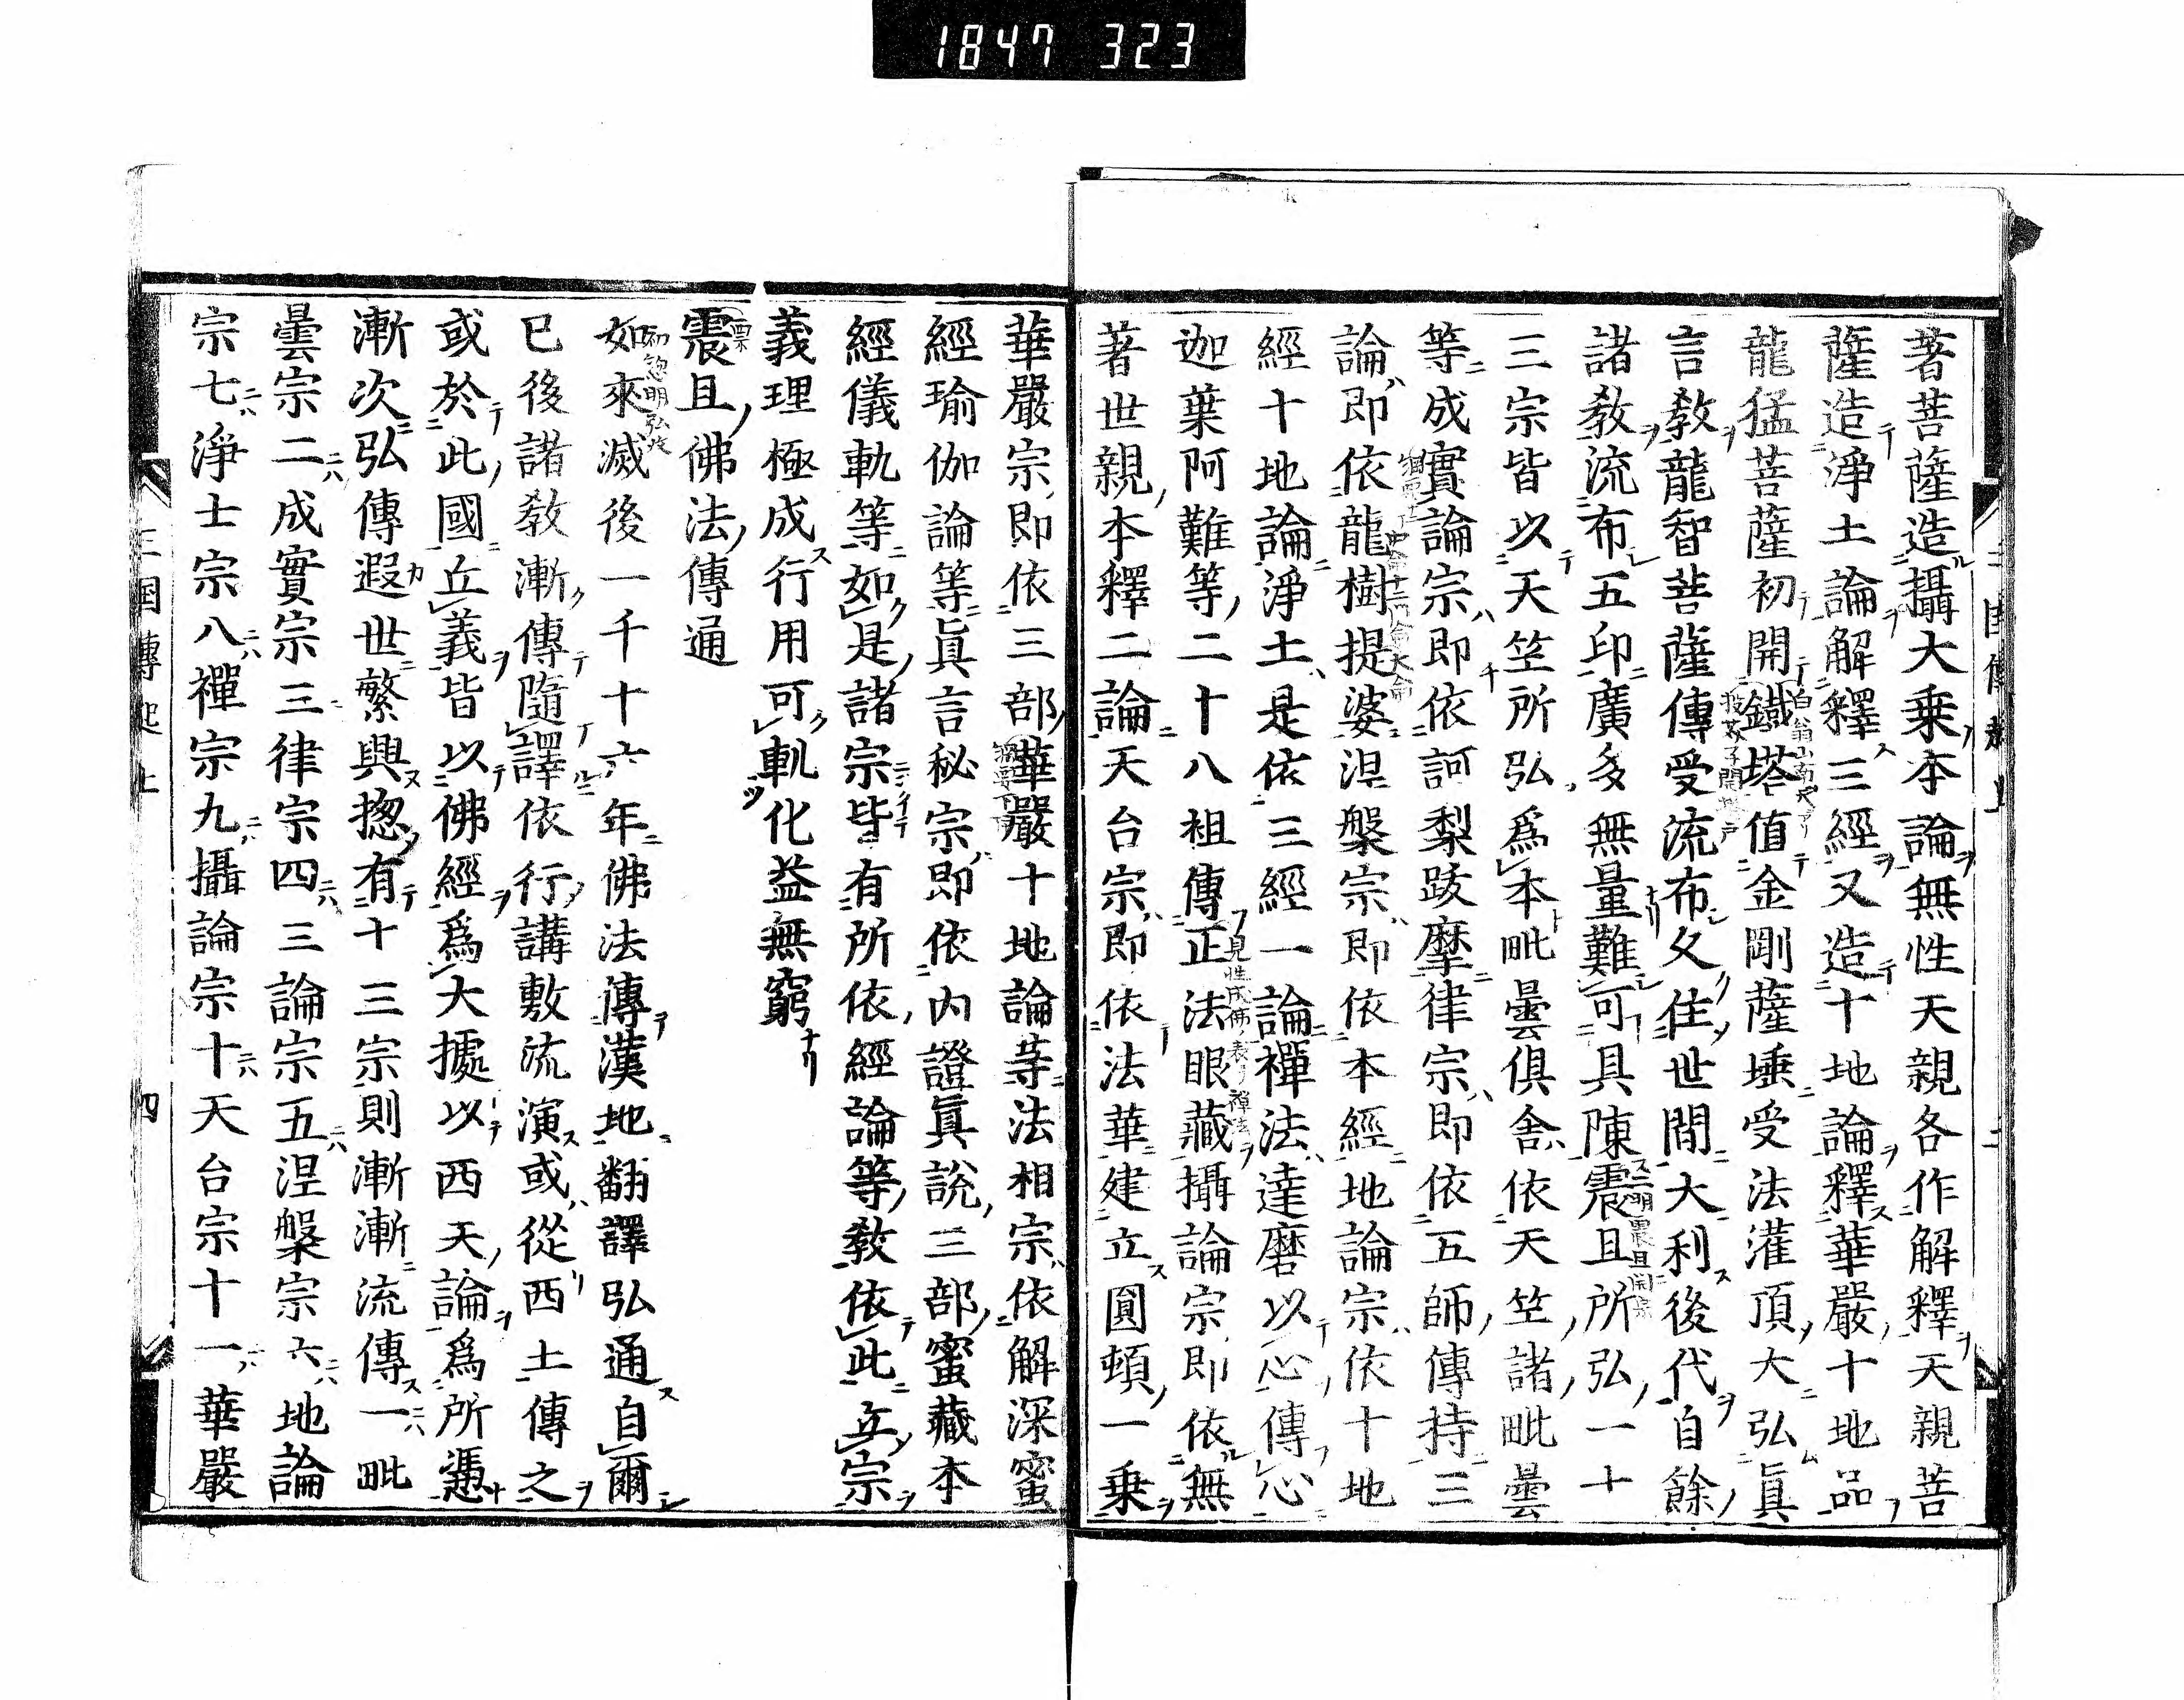 1847 323
著菩薩造攝大乗本論無性天親各作解釋天親菩
薩造淨土論解釋三經又造十地論釋華嚴十地品
龍猛菩薩初開鐵塔値金剛薩埵受法灌頂大弘眞
言敎龍智菩薩傳受流布久住世間大利後代自餘
諸敎流布五印廣多無量難可具陳震旦所弘一十
三宗皆以天竺所弘爲本毗曇俱舍依天竺諸毗曇
等成實論宗即依訶梨跋摩律宗即依五師傳持三
論即依龍樹提婆涅槃宗即依本經地論宗依十地
經十地論淨土是依三經一論禪法達磨以心傳心
迦葉阿難等二十八祖傳正法眼藏攝論宗即依無
著世親本釋二論天台宗即依法華建立圓頓一乗
華嚴宗即依三部華嚴十地論等法相宗依解深蜜
經瑜伽論等眞言秘宗即依內證眞說三部蜜藏本
經儀軌等如是諸宗皆有所依經論等敎依此立宗
義理極成行用可軌化益無窮
震旦佛法傳通
如來滅後一千十六年佛法傳漢地翻譯弘通自爾
已後諸敎漸傳隨譯依行講敷流演或從西土傳之
或於此國立義皆以佛經爲大據以西天論爲所憑
漸次弘傳遐世繁興揔有十三宗則漸漸流傳一毗
曇宗二成實宗三律宗四三論宗五涅槃宗六地論
宗七淨士宗八禪宗九攝論宗十天台宗十一華嚴
三国傳起上
四